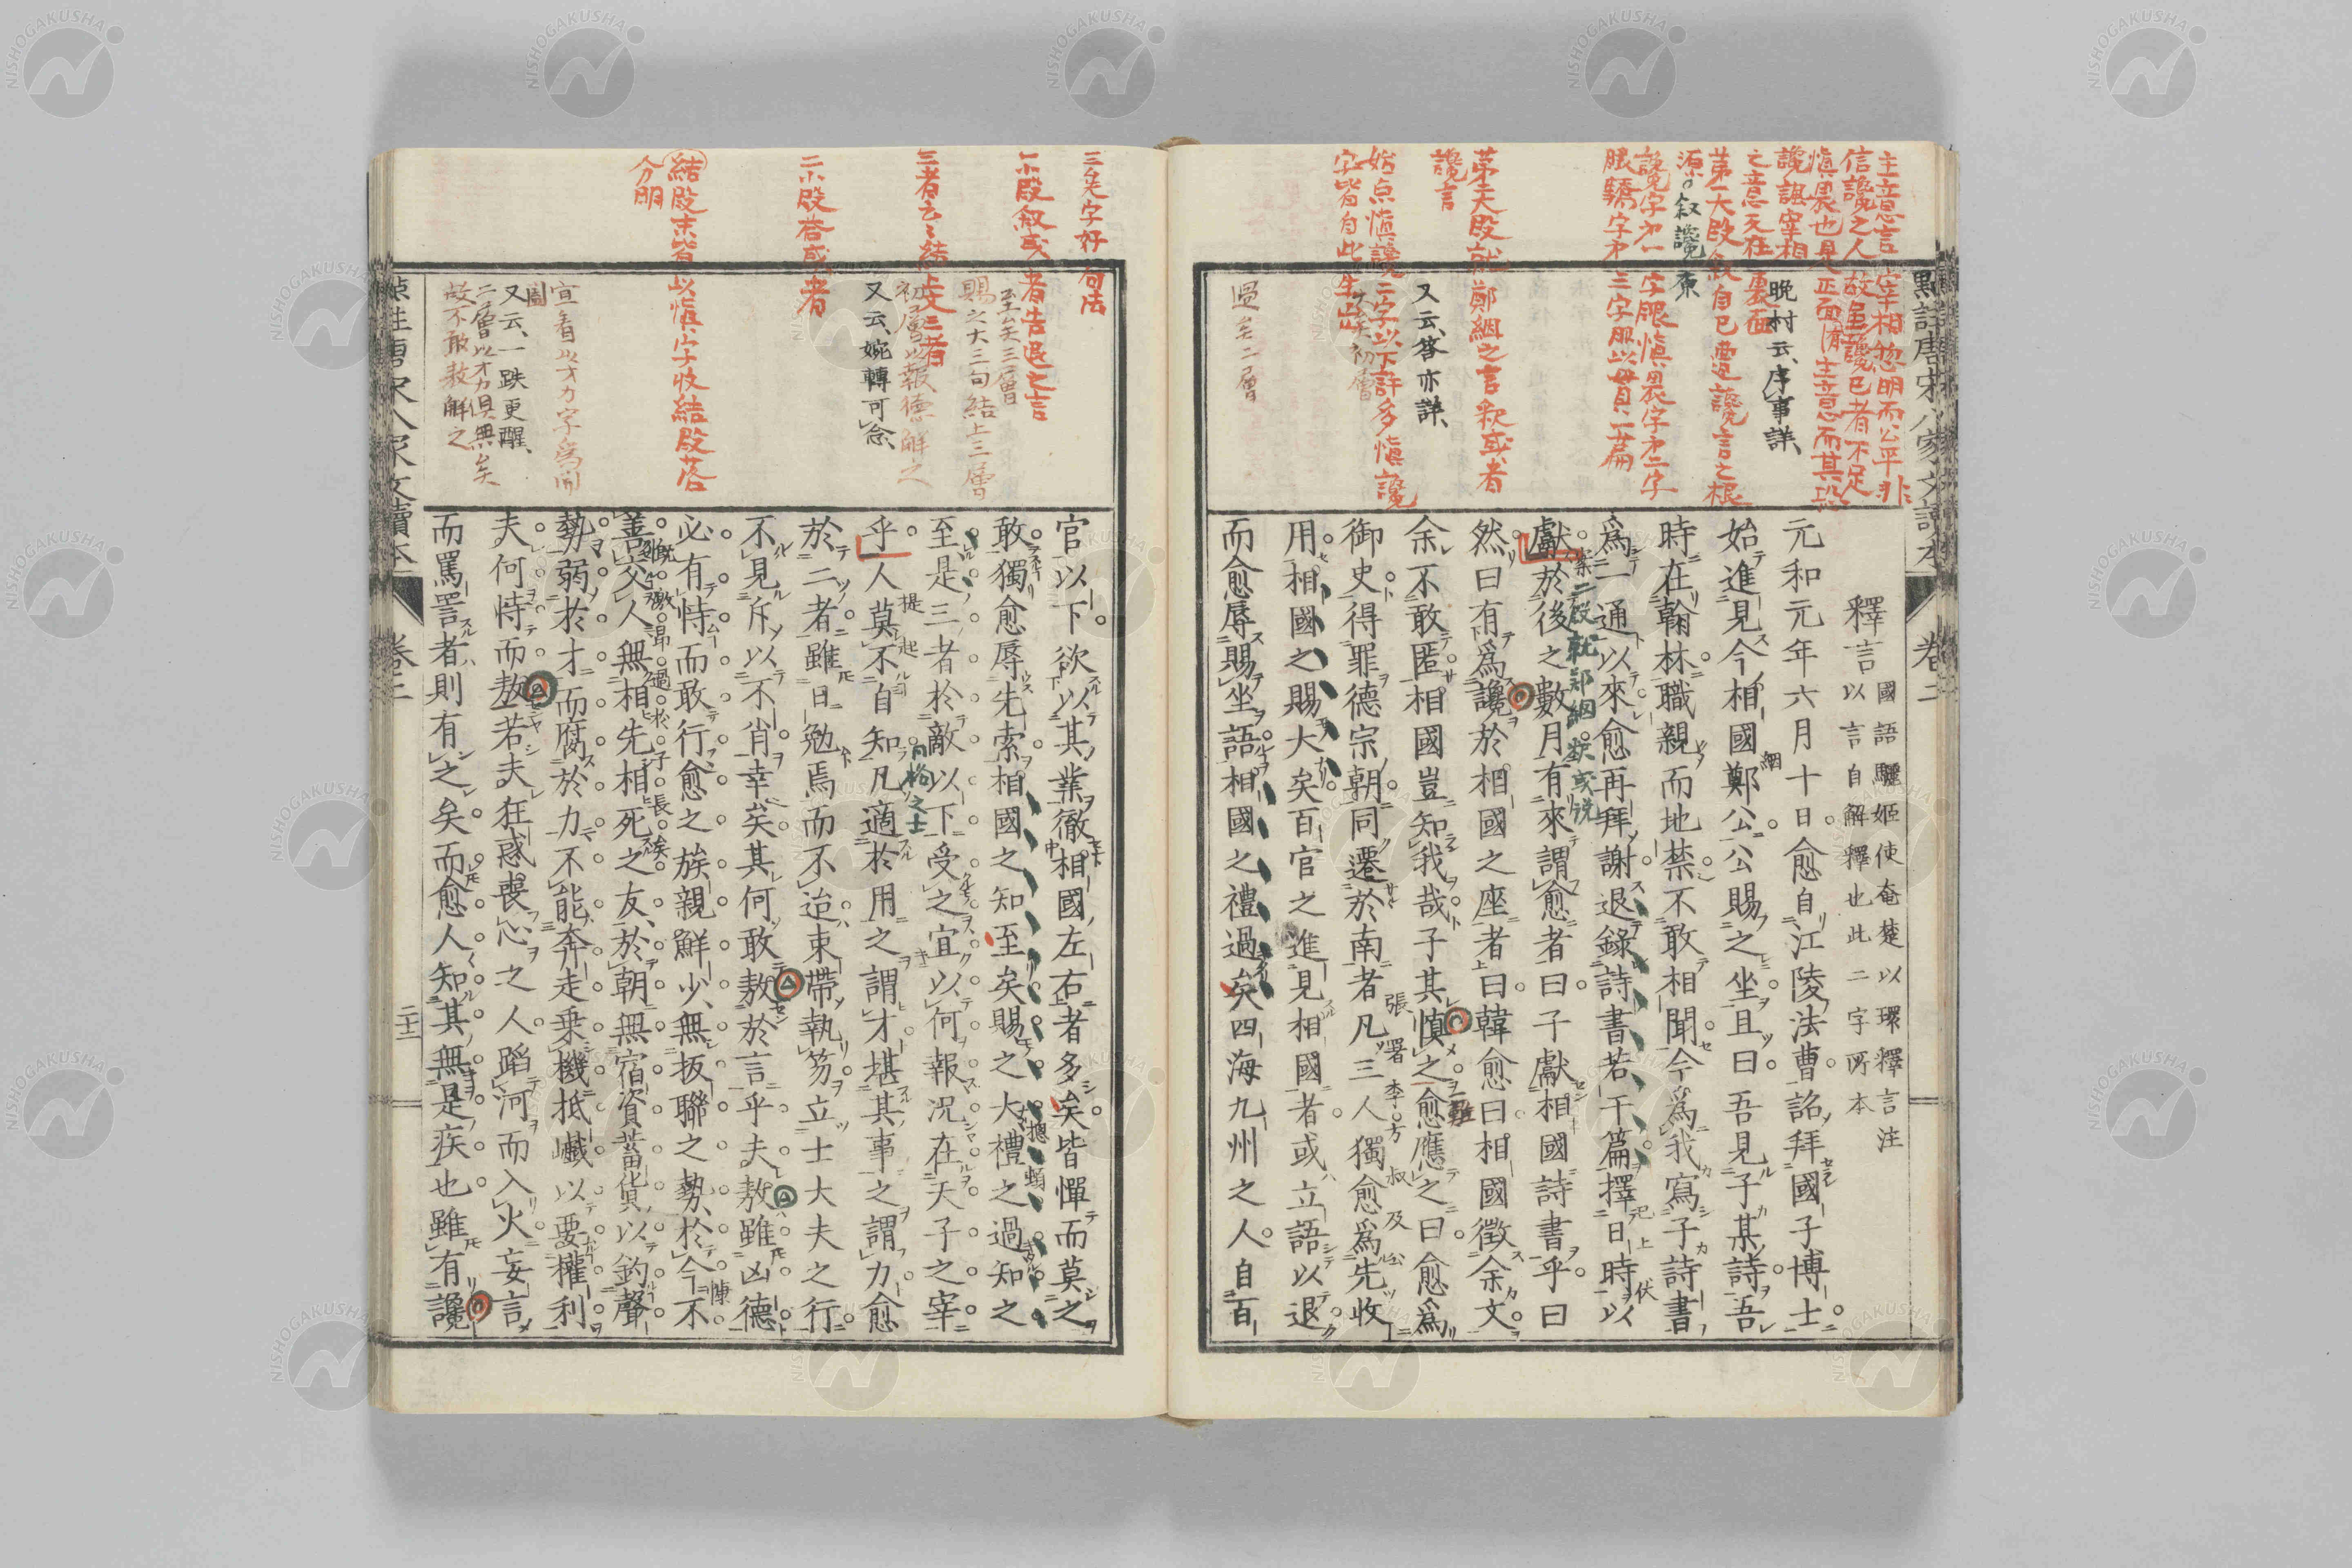 釋言
國語驪姬使奄楚以環釋言注
以言自解釋也此二字所本
元和元年六月十日愈自江陵法曹詔拜國子博士
始進見今相國鄭公公賜之坐且曰吾見子某詩吾
時在翰林職親而地禁不敢相聞今爲我寫子詩書
爲一通以來愈再拜謝退錄詩書若干篇擇日時以
獻於後之數月有來謂愈者曰子獻相國詩書乎曰
然曰有爲讒於相國之座者曰韓愈曰相國徵余文
余不敢匿相國豈知我哉子其慎之愈應之曰愈爲
御史得罪德宗朝同遷於南者凡三人獨愈爲先收
用相國之賜大矣百官之進見相國者或立語以退
而愈辱賜坐語相國之禮過矣四海九州之人自百
主意言宰相怱明而公平非
信讒之人故虽讒已者不足
慎畏也是正面主意而其
讒誹宰相
之意天在裏面
晩村云、序事詳、
第一大段叙自已遭讒言之根
源。叙讒案
讒字才一字眼慎畏字才二字
眼驕字才三字眼以貫一篇
第夫段就鄭絪之言釈或者
讒言
又云、答亦詳、
始点慎讒二字以下許多慎讒
字皆自此生出
矣初層
過矣二層
官以下欲以其業徹相國左右者多矣皆憚而莫之
敢獨愈辱先索相國之知至矣賜之大禮之過知之
至是三者於敵以下受之宜以何報況在天子之宰
乎人莫不自知凡適於用之謂才堪其事之謂力愈
於二者雖日勉焉而不迨束帶執笏立士大夫之行
不見斥以不肖幸矣其何敢敖於言乎夫敖雖凶德
必有恃而敢行愈之族親鮮少無扳聯之勢於今不
善交人無相先相死之友於朝無宿資蓄貨以釣聲
勢弱於才而腐於力不能奔走乗機抵巇以要權利
夫何恃而敖若夫狂惑喪心之人蹈河而入火妄言
而罵詈者則有之矣而愈人知其無是疾也雖有讒
三矣字好句法
一小段叙或者告退之言
至矣三層
賜之大三句結上三層
三者云云結上文三者
初層以報德解之
又云、婉轉可念、
二小段答或者
結段末皆以慎字收結段落
分明
宜看以才力字爲関
又云、一跌更醒、
二層以才力俱無矣
故不敢敖解之